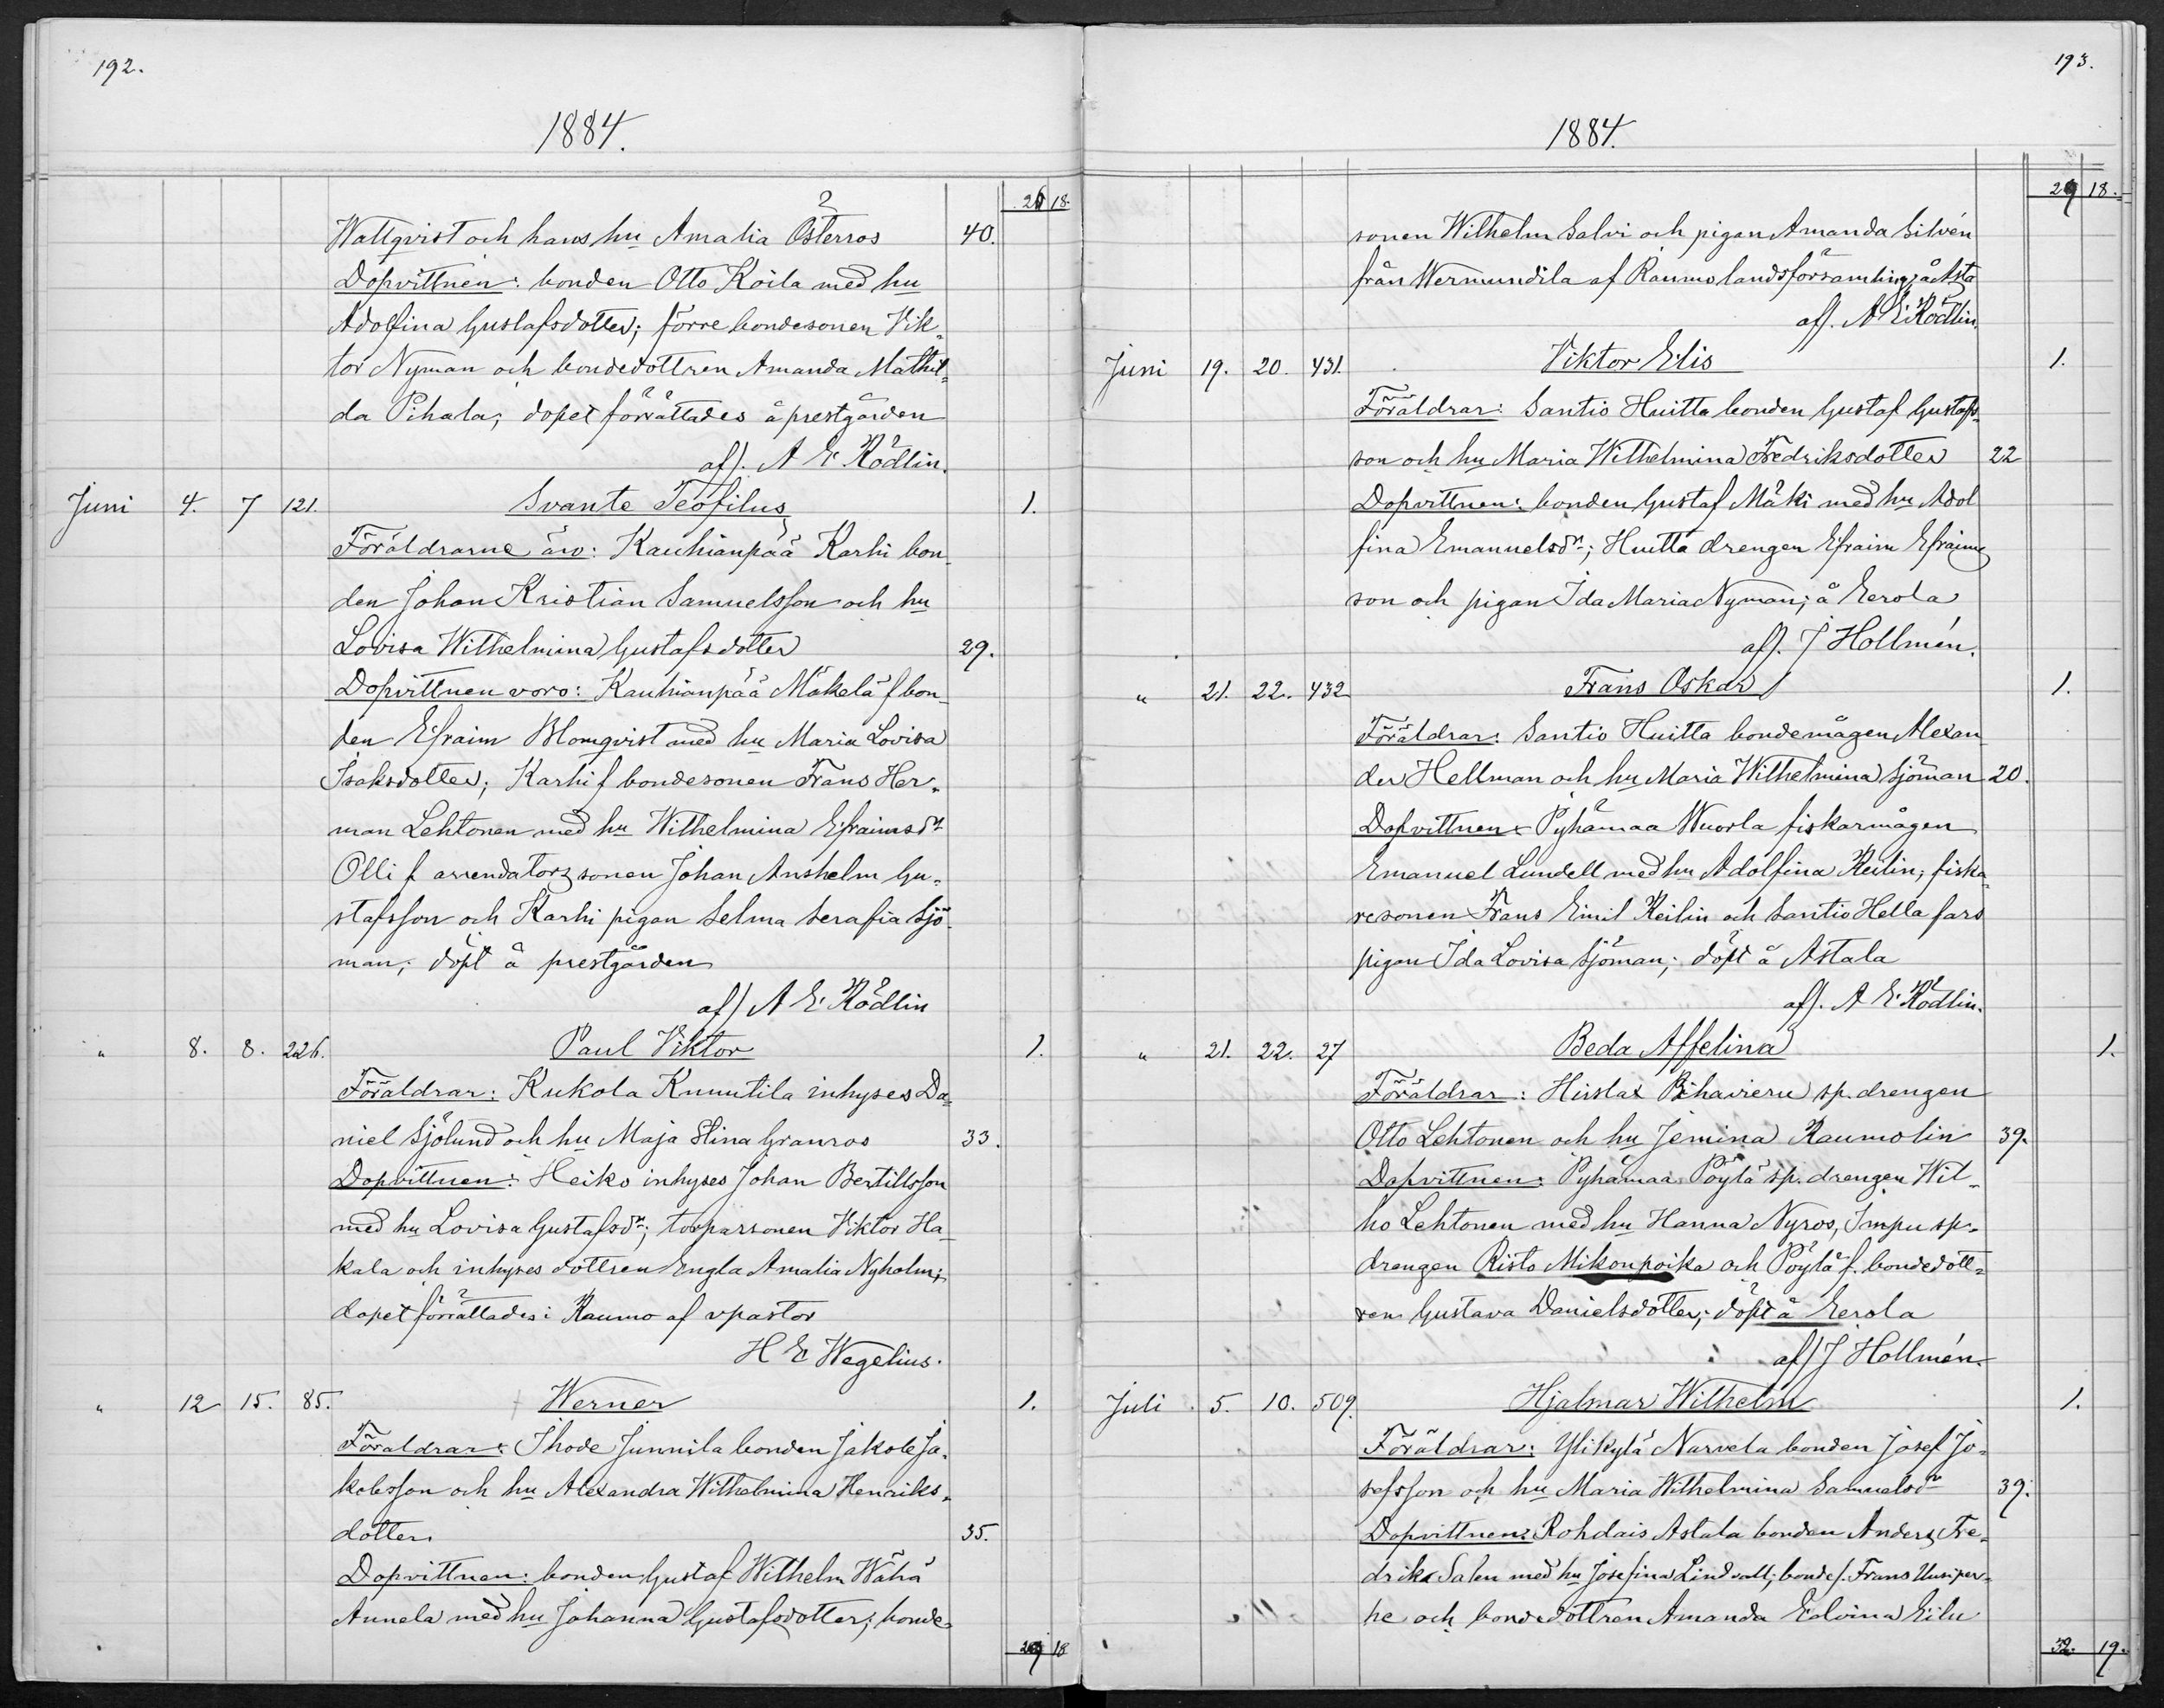 192.
1884.
26 18.
Wallqvist och hans hu Amalia Österros 40.
Dopvittnen: bonden Otto Koila med hu
Adolfina Gustafsdotter; förre bondesonen Vik-
tor Nyman och bondedottren Amanda Mathil-
da Pihala; dopet förrättades å prestgården
af/. A E. Rödlin.
Juni 4. 7 121. Svante Teofilus 1.
Föräldrarne äro: Kauhianpää Karhi bon-
den Johan Kristian Samuelsson och hu
Lovisa Wilhelmina Gustafsdotter 29.
Dopvittnen voro: Kauhianpää Mäkelä f bon-
den Efraim Blomqvist med hu Maria Lovisa
Isaksdotter; Karhi f bondesonen Frans Her-
man Lehtonen med hu Wilhelmina Efraimsdr
Olli f arrendators sonen Johan Anshelm Gu-
stafsson och Karhi pigan Selma Serafia Sjö-
man; döpt å prestgården
af/ A E. Rödlin
" 8. 8. 226. Paul Viktor 1.
Föräldrar: Kukola Knuutila inhyses Da-
niel Sjölund och hu Maja Stina Granros 33.
Dopvittnen: Heiko inhyses Johan Bertillsson
med hu Lovisa Gustafsdr; torparsonen Viktor Ha-
kala och inhyses dottren Engla Amalia Nyholm;
dopet förrättades i Raumo af vpastor
H E Wegelius.
" 12 15. 85. Werner 1.
Föräldrar: Ihode Junnila bonden Jakob Ja-
kobsson och hu Alexandra Wilhelmina Henriks-
dotter 35.
Dopvittnen: bonden Gustaf Wilhelm Wähä
Annela med hu Johanna Gustafsdotter; bonde-
29 18
193.
1884.
29 18.
sonen Wilhelm Salvi och pigan Amanda Silvén
från Wermundila af Raumo landsförsamling;
af/. A E. Rödlin.
Juni 19. 20. 431. Viktor Elis 1.
Föräldrar: Santio Huitta bonden Gustaf Gustafs-
son och hu Maria Wilhelmina Fredriksdotter 22
Dopvittnen: bonden Gustaf Mäki med hu Adol
fina Emanuelsdr; Huitta drengen Efraim Efraims
son och pigan Ida Maria Nyman; å Eerola
af/. J Hollmén.
" 21. 22. 432 Frans Oskar 1.
Föräldrar: Santio Huitta bondemågen Alexan-
der Hellman och hu Maria Wilhelmina Sjöman 20.
Dopvittnen: Pyhämaa Wuorla fiskarmågen
Emanuel Lundell med hu Adolfina Keilin; fiska-
resonen Frans Emil Keilin och Santio Hella fars
pigan Ida Lovisa Sjöman; döpt å Astala
af/. A E. Rödlin.
" 21. 22. 27 Beda Affelina 1.
Föräldrar: Hirslax sp. drengen
Otto Lehtonen och hu Jemina Raumolin 39.
Dopvittnen: Pyhämaa Pöylä sp. drengen Wil-
ho Lehtonen med hu Hanna Nyros, Impu sp-
drengen Risto Mikonpoika och Pöylä f. bondedott-
ren Gustava Danielsdotter; döpt å Eerola
af/ J Hollmén.
Juli 5. 10. 509. Hjalmar Wilhelm 1.
Föräldrar: Ylikylä Narvela bonden Josef Jo-
sefsson och hu Maria Wilhelmina Samuelsdr 39.
Dopvittnen: Rohdais Astala bonden Anders Fre-
drik Salen med hu Josefina Lindvall; bonde f. Frans Uusiper-
he och bondedottren Amanda Edvina Eilu
32. 19.